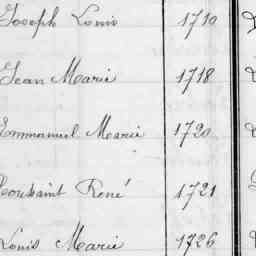 Joseph Louis 1710
Jean Marie 1718
Emmanuel Marie 1720
Toussaint René 1721
Louis Marie 1726